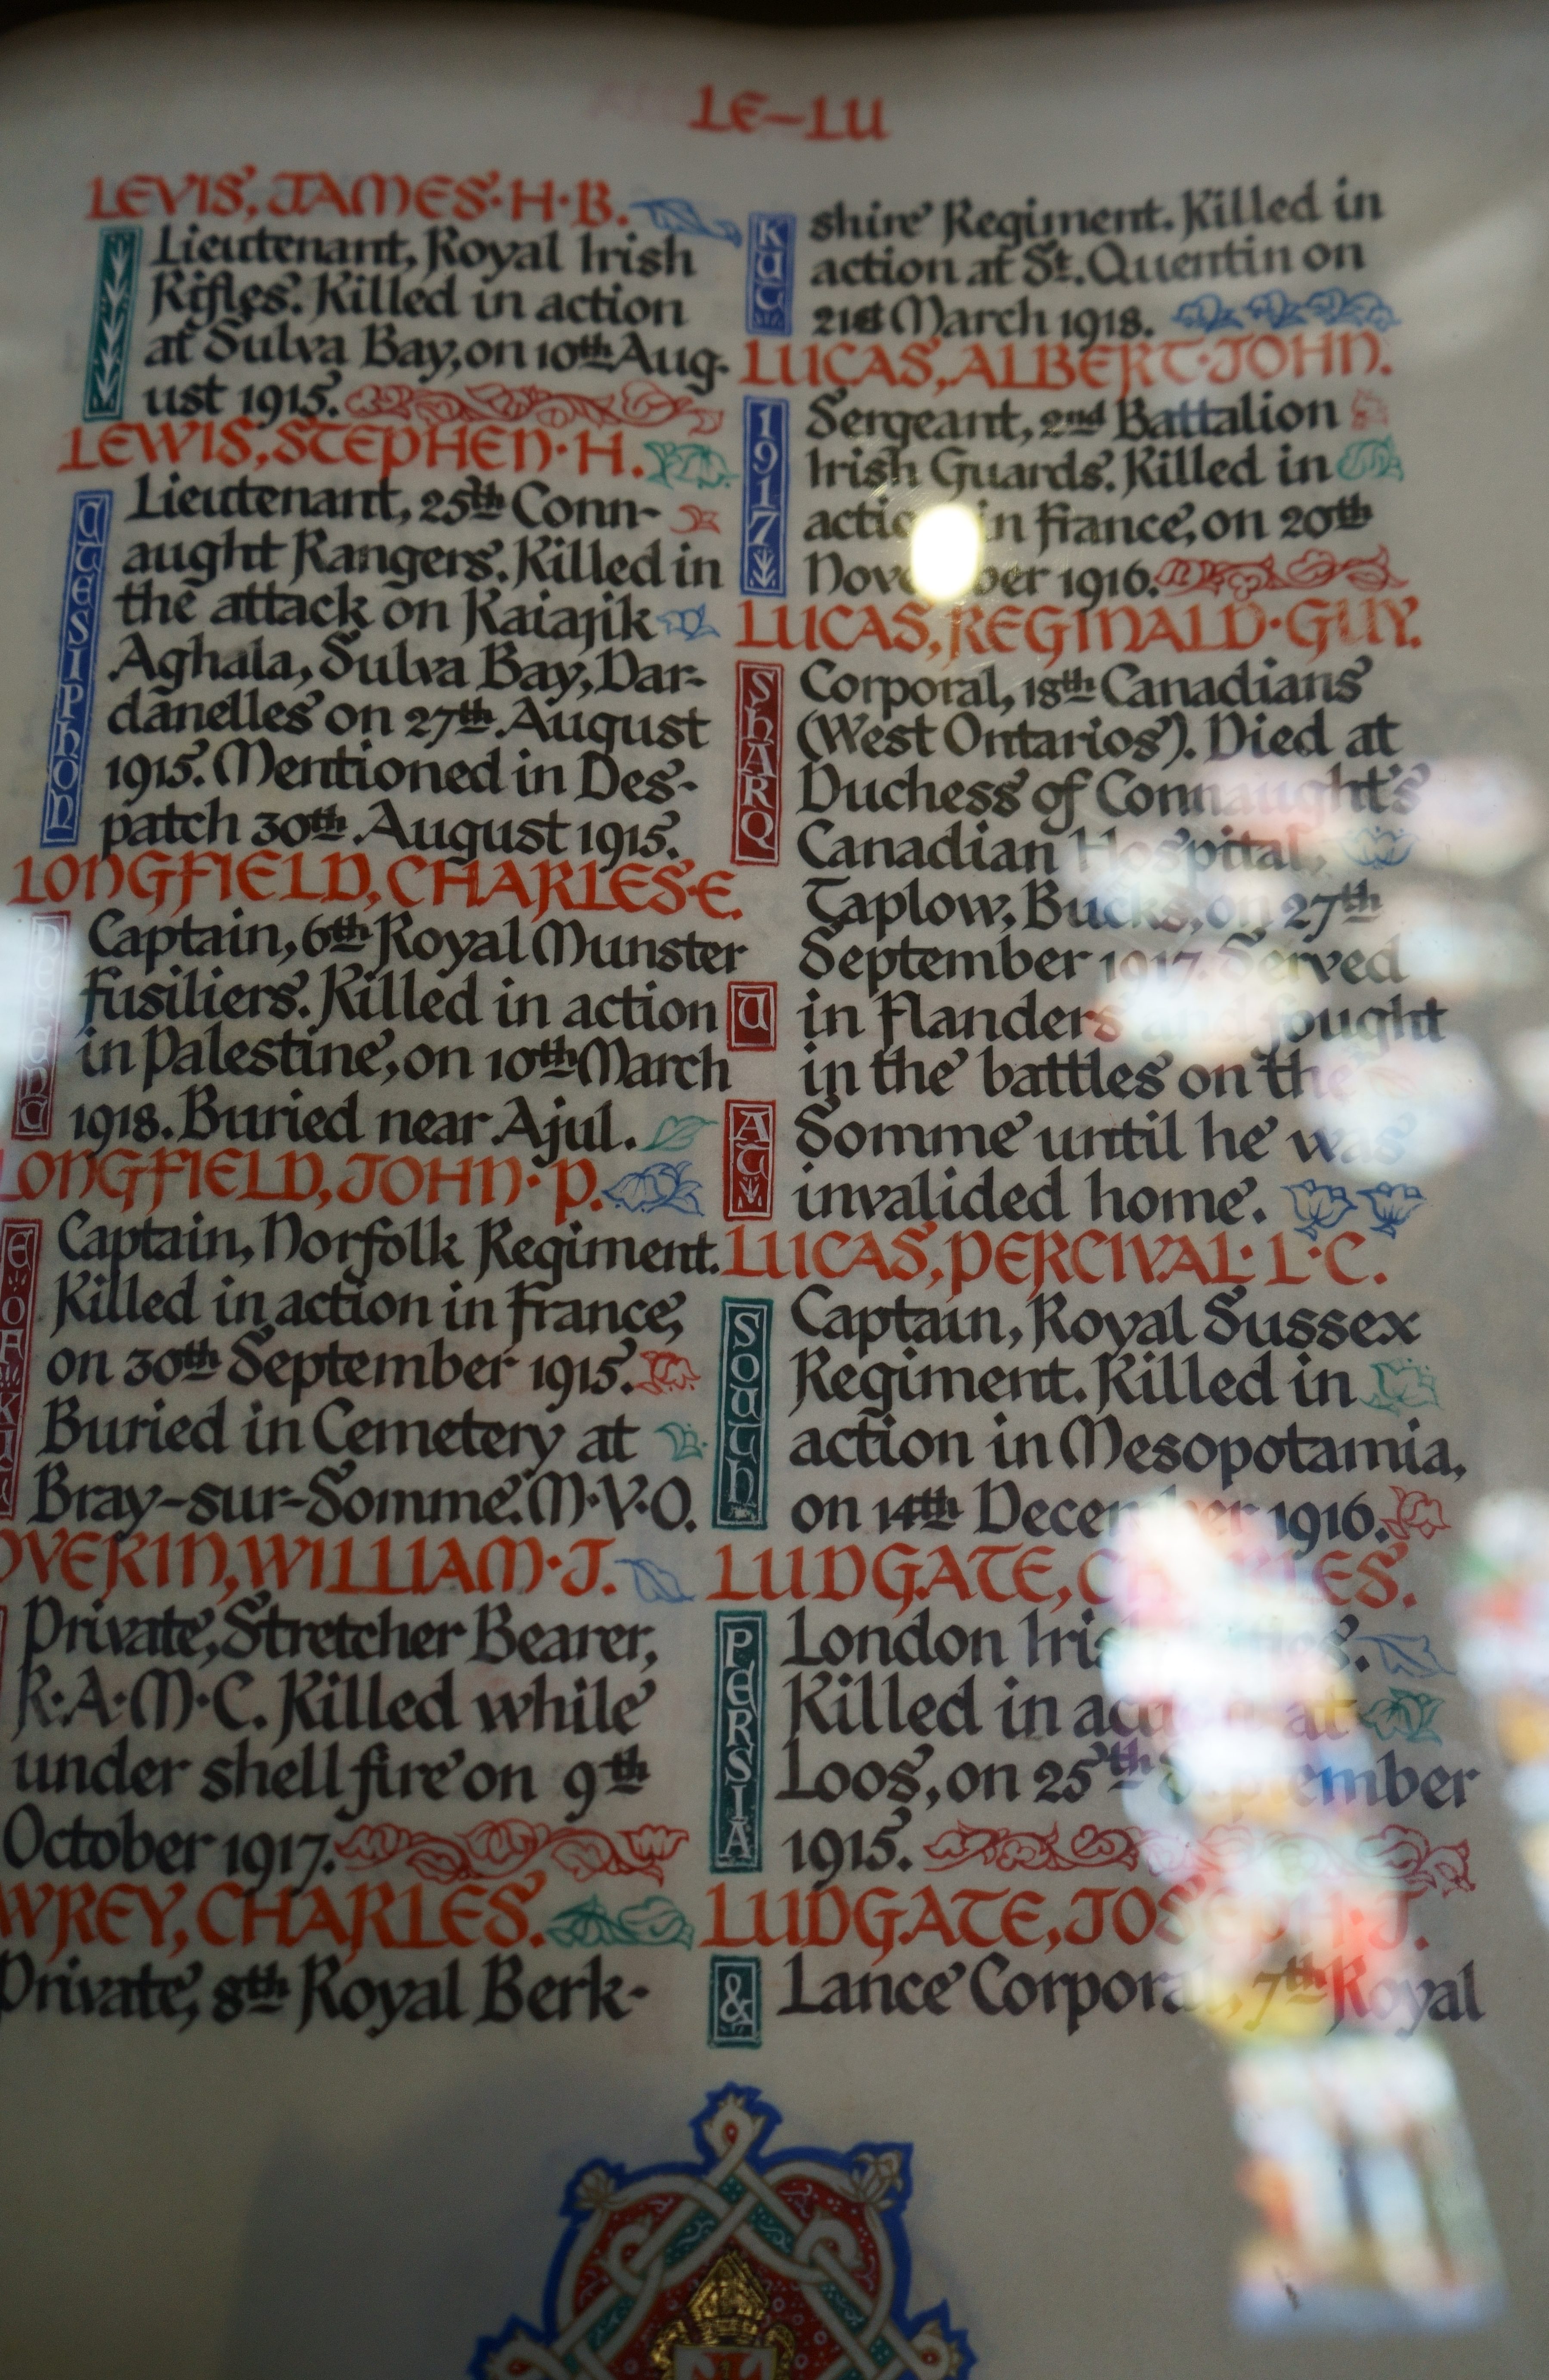 LE—LU
LEVIS, JAMES·H·B.
Lieutenant, Royal Irish
Rifles. Killed in action
at Sulva Bay, on 10th Aug-
ust 1915.
LEWIS, STEPHEN·H.
CTESIPHON
Lieutenant, 25th Conn-
aught Rangers. Killed in
the attack on Kaiajik
Aghala, Sulva Bay, Dar-
danelles on 27th August
1915. Mentioned in Des-
patch 30th August 1915.
LONGFIELD, CHARLES·E.
Captain, 6th Royal Munster
Fusiliers. Killed in action
in Palestine, on 10th March
1918. Buried near Ajul.
LONGFIELD, JOHN·P.
Captain, Norfolk Regiment.
Killed in action in France,
on 30th September 1915.
Buried in Cemetery at
Bray-sur-Somme. M·V·O.
OVERIN, WILLIAM·J.
Private, Stretcher Bearer,
R·A·M·C. Killed while
under shell fire on 9th
October 1917.
WREY, CHARLES.
Private, 8th Royal Berk-
KUT
shire Regiment. Killed in
action at St. Quentin on
21st March 1918.
LUCAS, ALBERT·JOHN.
1917
Sergeant, 2nd Battalion
Irish Guards. Killed in
action in France, on 20th
November 1916.
LUCAS, REGINALD·GUY.
SHARQ
Corporal, 18th Canadians
(West Ontarios). Died at
Duchess of Connaught's
Canadian Hospital,
Taplow, Bucks, on 27th
September 1917. Served
U
in Flanders and fought
in the battles on the
AT
Somme until he was
invalided home.
LUCAS, PERCIVAL·L·C.
SOUTH
Captain, Royal Sussex
Regiment. Killed in
action in Mesopotamia,
on 14th December 1916.
LUDGATE, CHARLES.
PERSIA
London Irish Rifles.
Killed in action at
Loos, on 25th September
1915.
LUDGATE, JOSEPH·J.
&
Lance Corporal, 7th Royal